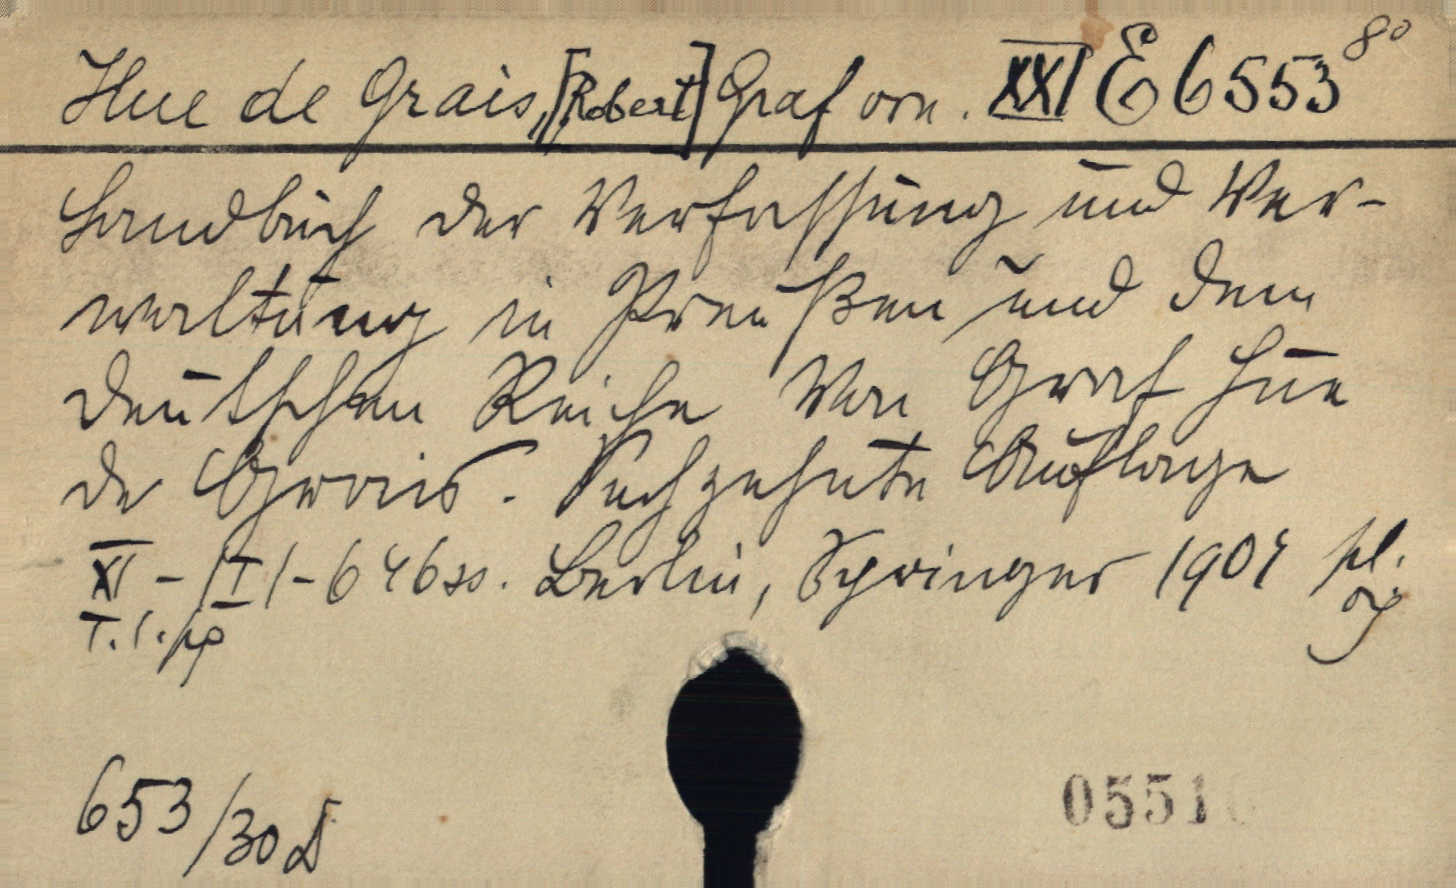 Hue de Grais, [Robert] Graf von. XXI E 6553 8°
Handbuch der Verfassung und Ver-
waltung in Preußen und dem
deutschen Reiche Von Graf Hue
de Grais. Sechzehnte Auflage
XI - 1-646 SS. Berlin, Springer 1904
653/30
0551